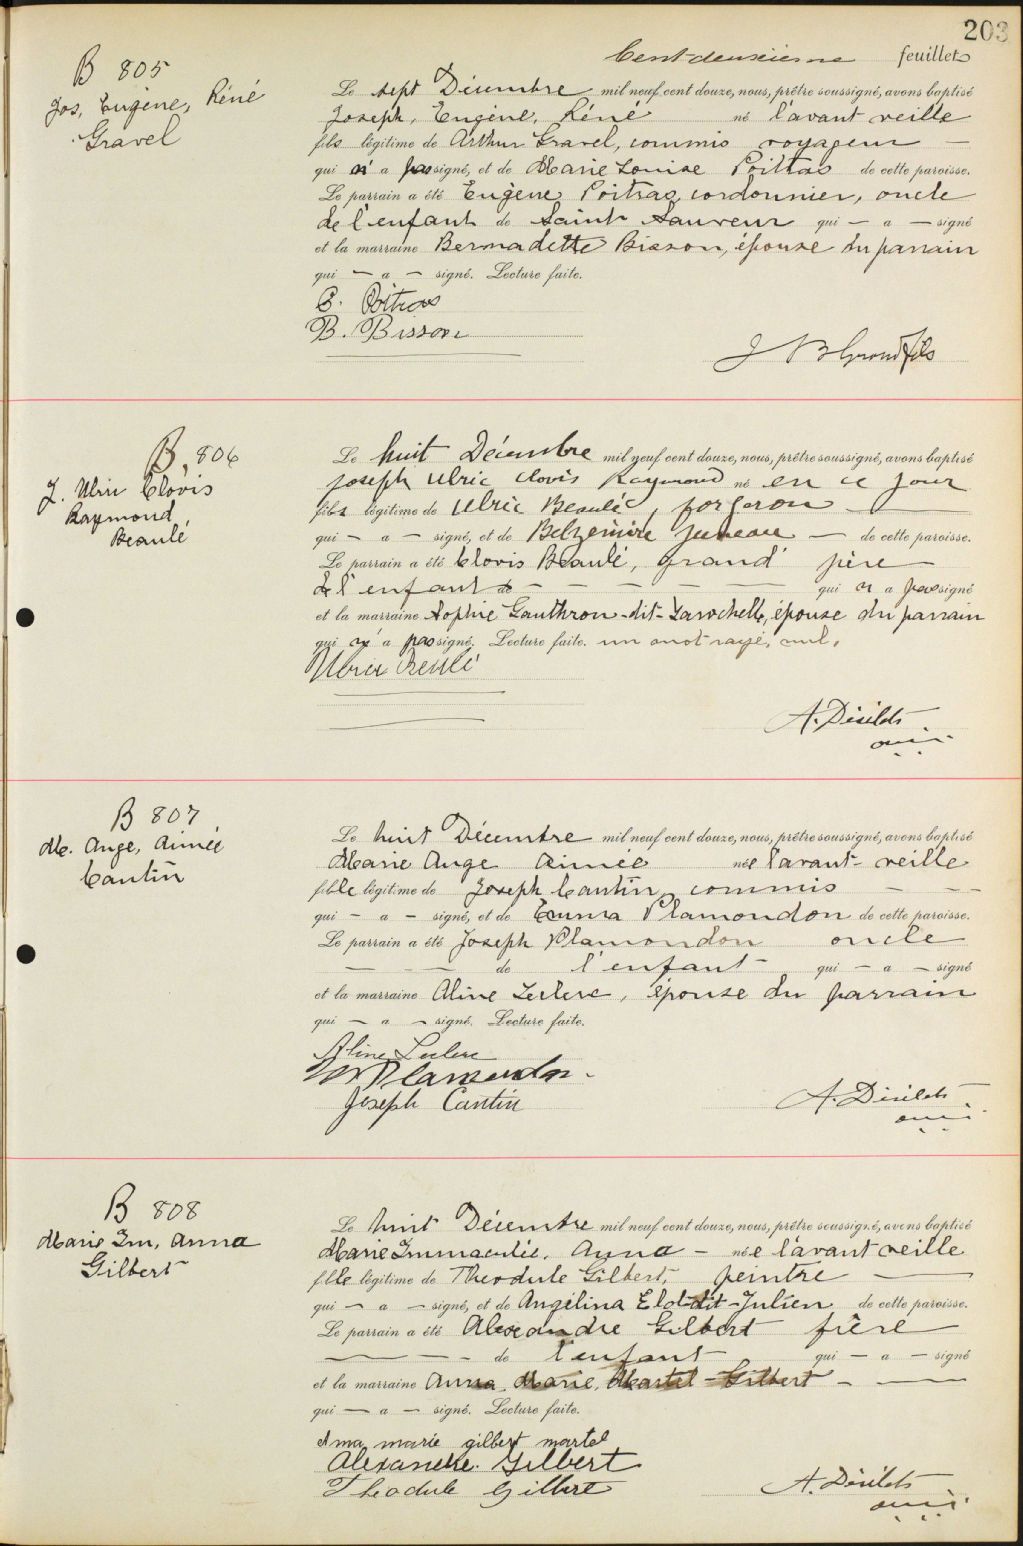 203
Cent deuxième feuillet
B 805
Jos, Eugène, Réné
Gravel
Le sept Décembre mil neuf cent douze, nous, prêtre soussigné, avons baptisé
Joseph, Eugène, Réné né l'avant veille
fils légitime de Arthur Gravel, commis voyageur —
qui n' a pas signé, et de Marie Louise Poitras de cette paroisse.
Le parrain a été Eugène Poitras, cordonnier, oncle
de l'enfant de Saint Sauveur qui — a — signé
et la marraine Bernadette Bisson, épouse du parrain
qui — a — signé. Lecture faite.
E. Poitras
B. Bisson
J B Grondin fils
B 806
J. Ulric Clovis
Raymond
Beaulé
Le huit Décembre mil neuf cent douze, nous, prêtre soussigné, avons baptisé
Joseph Ulric Clovis Raymond né en ce jour
fils légitime de Ulric Beaulé, forgeron —
qui — a — signé, et de Belzémire Juneau — de cette paroisse.
Le parrain a été Clovis Beaulé, grand père
de l'enfant de — — — — — qui n a pas signé
et la marraine Sophie Gauthron-dit-Larochelle, épouse du parrain
qui n' a pas signé. Lecture faite. un mot rayé, nul.
Ulric Beaulé
A. Désilets
B 807
M. Ange, Aimée
Cantin
Le huit Décembre mil neuf cent douze, nous, prêtre soussigné, avons baptisé
Marie Ange Aimée née l'avant-veille
fille légitime de Joseph Cantin, commis — — —
qui — a — signé, et de Emma Plamondon de cette paroisse.
Le parrain a été Joseph Plamondon oncle
— — — de l'enfant — qui — a — signé
et la marraine Aline Leclerc, épouse du parrain
qui — a — signé. Lecture faite.
Aline Leclerc
Plamondon
Joseph Cantin
A. Désilets
B 808
Marie Im, Anna
Gilbert
Le huit Décembre mil neuf cent douze, nous, prêtre soussigné, avons baptisé
Marie Immaculée, Anna — née l'avant veille
fille légitime de Théodule Gilbert, peintre —
qui — a — signé, et de Angélina Elot-dit-Julien de cette paroisse.
Le parrain a été Alexandre Gilbert frère
— — — de l'enfant — qui — a — signé
et la marraine Anna, Marie, Martel-Gilbert — —
qui — a — signé. Lecture faite.
marie gilbert martel
Alexandre Gilbert
Theodule Gilbert
A. Désilets